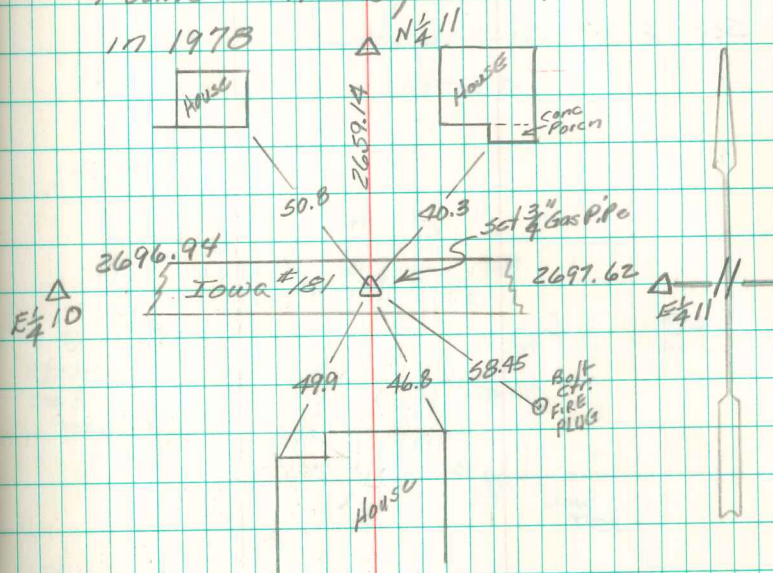 in 1978
N¼ 11
House
House
conc
Porch
2659.14
50.8
40.3
Set ¾" Gas Pipe
2696.94
Iowa #181
2697.62
E¼ 10
E¼ 11
49.9
46.8
58.45
Bolt
Ctr.
FIRE
PLUG
House